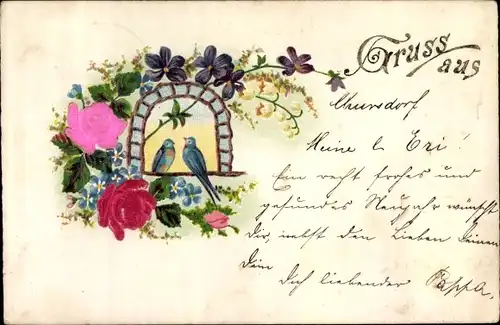 Gruss
aus
Meine l. Eri!
Ein recht frohes und
gesundes Neujahr wünscht
Dir, nebst den Lieben Deinen
Dein
Dich liebender